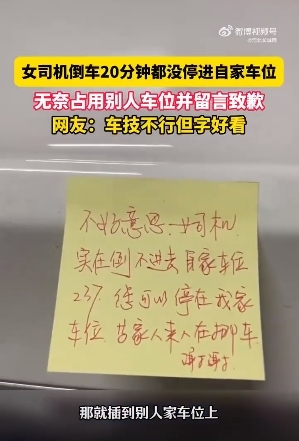 微博视频号
女司机倒车20分钟都没停进自家车位
无奈占用别人车位并留言致歉
网友：车技不行但字好看
不好意思：女司机
实在倒不进去自家车位
237. 您可以停在我家
车位 等家人来人在挪车
谢谢
那就插到别人家车位上